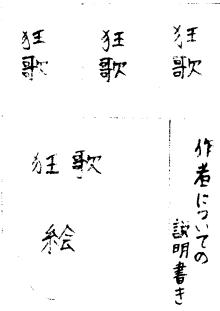 狂歌
狂歌
狂歌
作者についての
説明書き
狂歌
絵